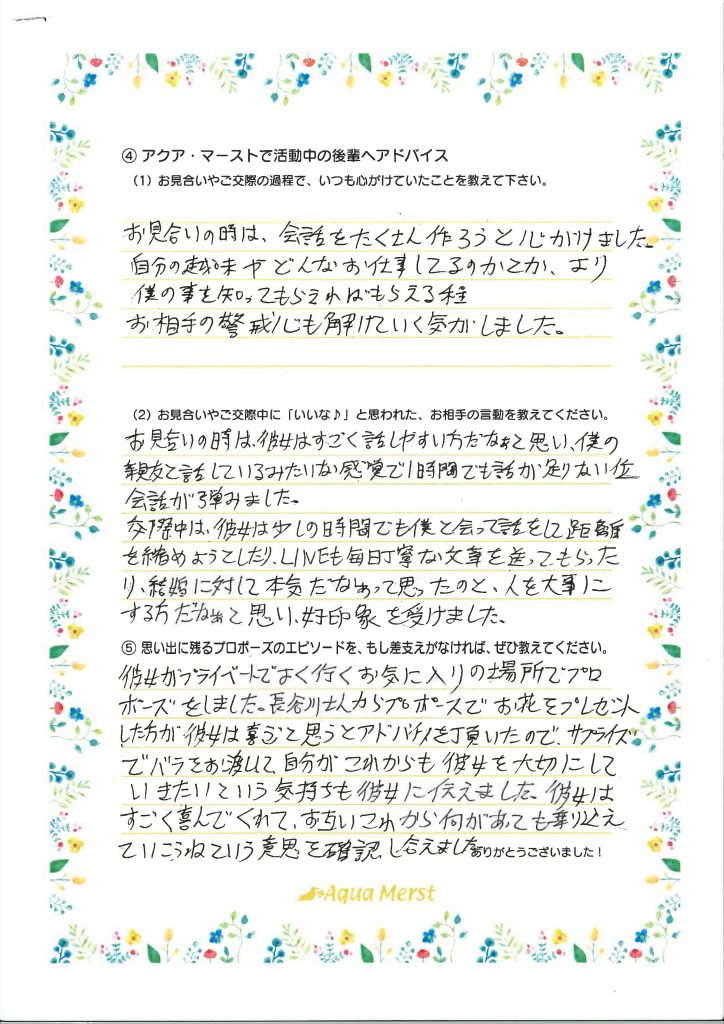 ④ アクア・マーストで活動中の後輩へアドバイス
（1）お見合いやご交際の過程で、いつも心がけていたことを教えて下さい。
お見合いの時は、会話をたくさん作ろうと心がけました。
自分の趣味やどんなお仕事してるのかとか、より
僕の事を知ってもらえればもらえる程
お相手の警戒心も解けていく気がしました。
（2）お見合いやご交際中に「いいな♪」と思われた、お相手の言動を教えてください。
お見合いの時は、彼女はすごく話しやすい方だなぁと思い、僕の
親友と話しているみたいな感覚で1時間でも話が足りない位
会話が弾みました。
交際中は、彼女は少しの時間でも僕と会って話をして距離
を縮めようとしたり、LINEも毎日丁寧な文章を送ってもらった
り、結婚に対して本気だなぁって思ったのと、人を大事に
する方だなぁと思い、好印象を受けました。
⑤ 思い出に残るプロポーズのエピソードを、もし差支えがなければ、ぜひ教えてください。
彼女がプライベートでよく行くお気に入りの場所でプロ
ポーズをしました。長谷川さんからプロポーズでお花をプレゼント
した方が彼女は喜ぶと思うとアドバイスを頂いたので、サプライズ
でバラをお渡しして、自分がこれからも彼女を大切にして
いきたいという気持ちも彼女に伝えました。彼女は
すごく喜んでくれて、お互いこれから何があっても乗り越え
ていこうねという意思を確認し合えました
ありがとうございました！
Aqua Merst